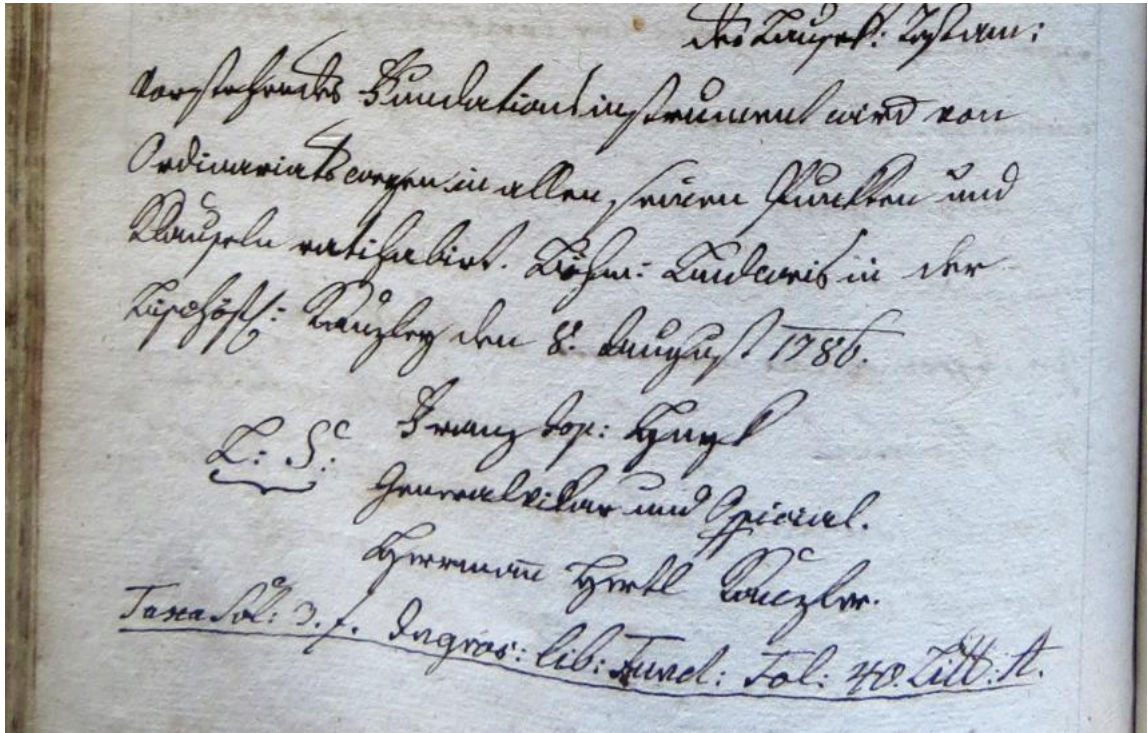 des Lauseck: Testam:
Vorstehendes Fundationsinstrument wird von
Ordinariatswegen in allen seinen Punkten und
Klauseln ratihabirt. Böhm: Budweis in der
Bischöfl: Kanzley den 8: August 1786.
L: S: Franz Jos:
Generalvikar und Offizial.
Herrmann Hertl Kanzler.
Taxa Sol: 3. f. Ingros: lib: Fund: Fol: 40. Litt: A.